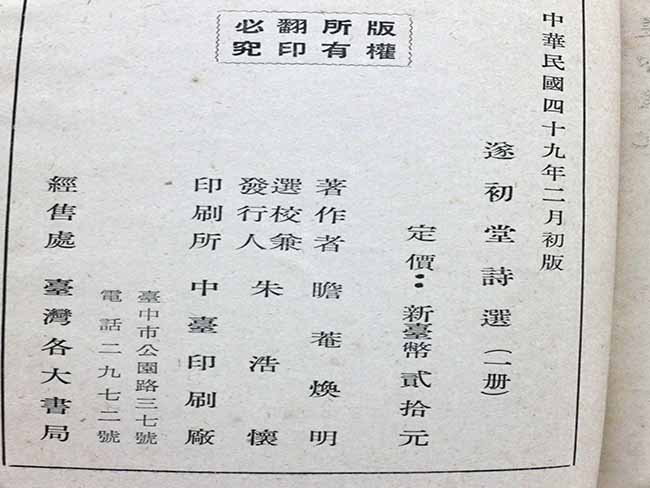 中華民國四十九年二月初版
版權所有
翻印必究
遂初堂詩選（一册）
定價：新臺幣貳拾元
著作者 瞻菴煥明
選校兼發行人 朱浩懷
印刷所 中臺印刷廠
臺中市公園路三七號
電話二九七二號
經售處 臺灣各大書局